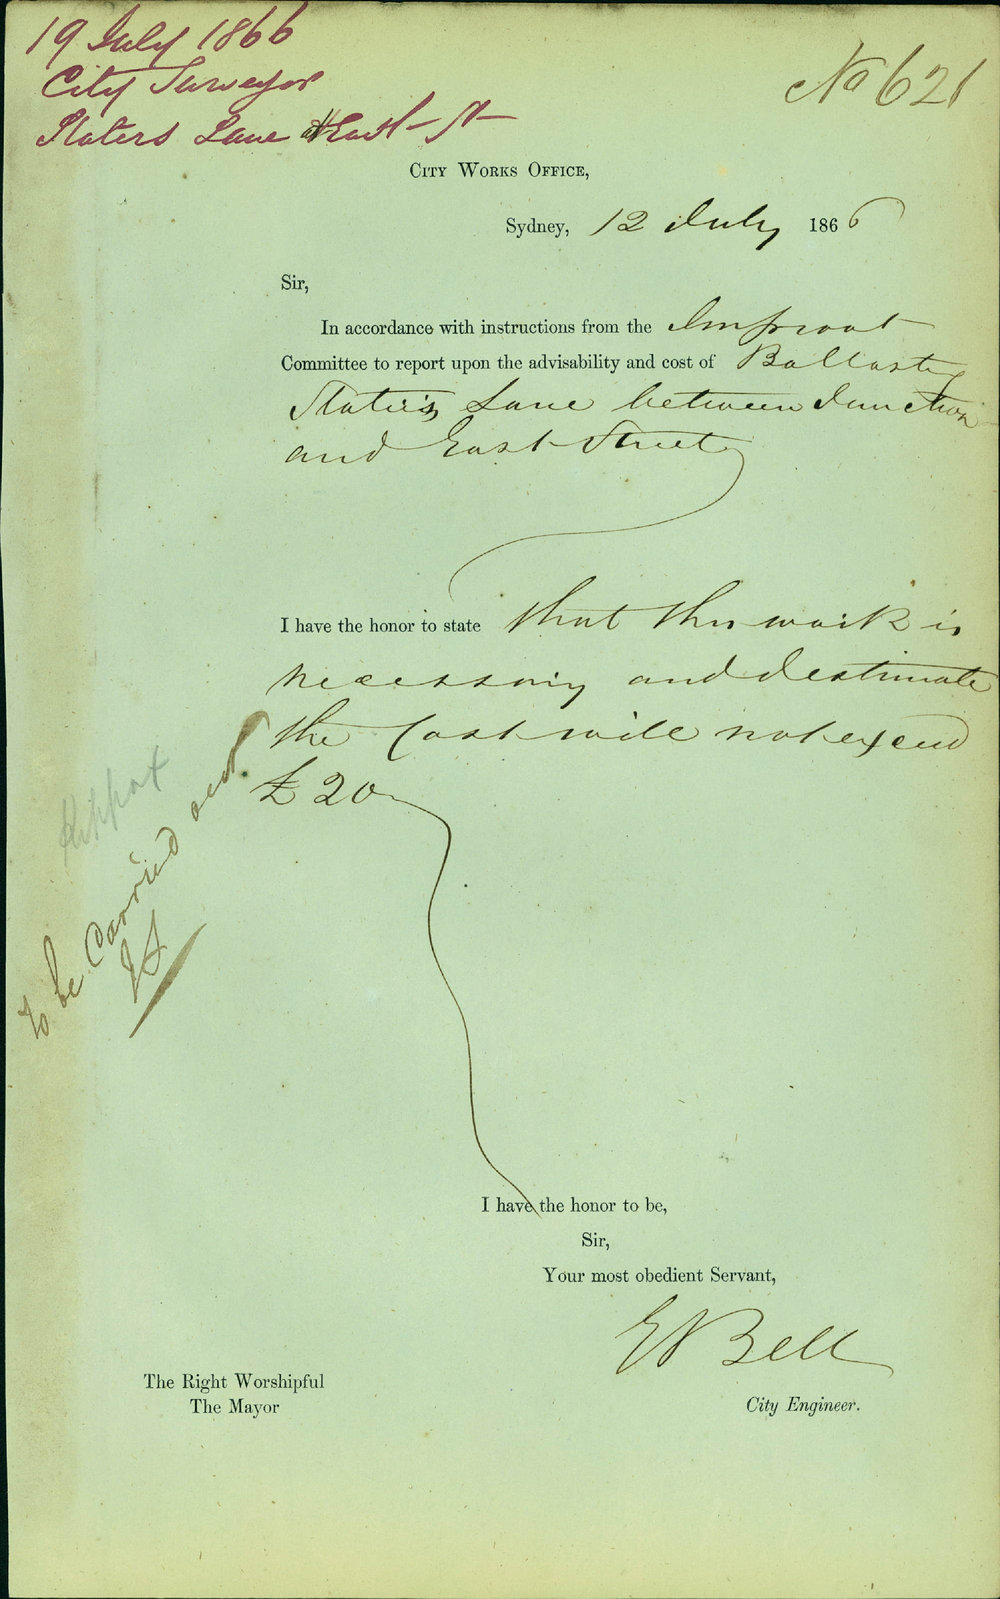 19 July 1866
City Surveyor
Slaters Lane & East St
No 621
CITY WORKS OFFICE,
Sydney, 12 July 1866
Sir,
In accordance with instructions from the Improvt
Committee to report upon the advisability and cost of Ballasting
Slater's Lane between Junction
and East Streets
I have the honor to state that this work is
necessary and I estimate
the Cost will not exceed
£20
Kippax
to be Carried out
I have the honor to be,
Sir,
Your most obedient Servant,
E Bell
The Right Worshipful
The Mayor
City Engineer.